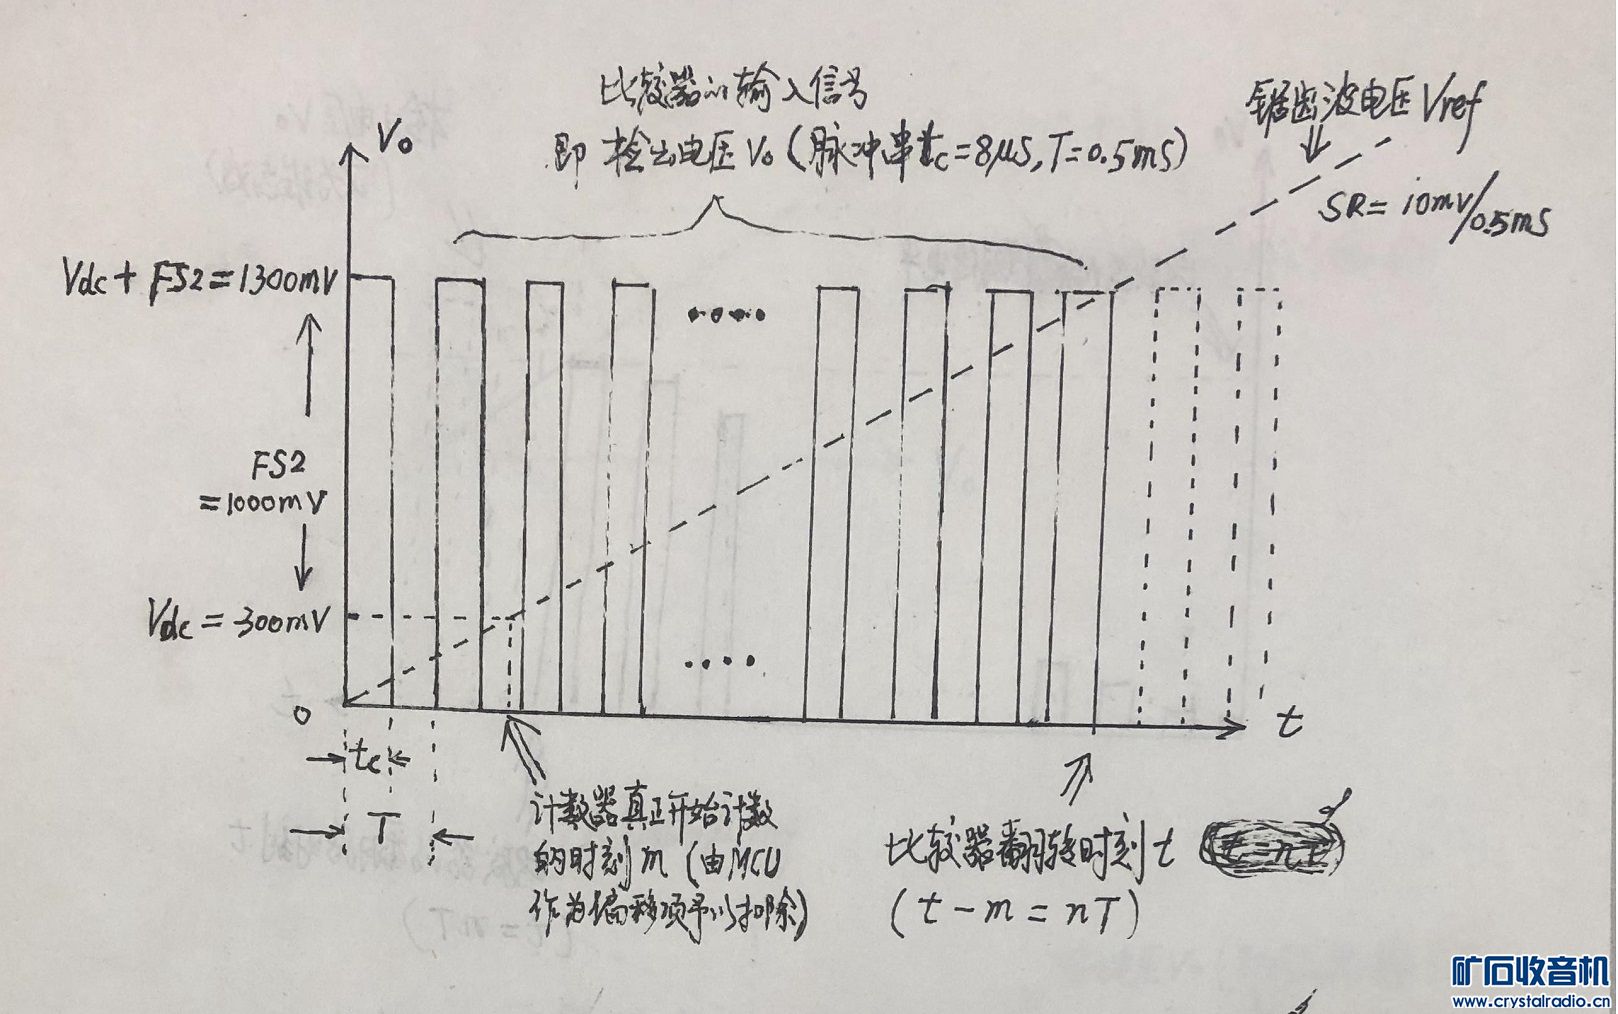 比较器的输入信号
即检出电压Vo(脉冲串tc=8μS,T=0.5mS)
锯齿波电压Vref
SR=10mV/0.5mS
Vo
Vdc+FS2=1300mV
FS2
=1000mV
Vdc=300mV
0
t
tc
T
计数器真正开始计数
的时刻m(由MCU
作为偏移项予以扣除)
比较器翻转时刻t
(t-m=nT)
矿石收音机
www.crystalradio.cn